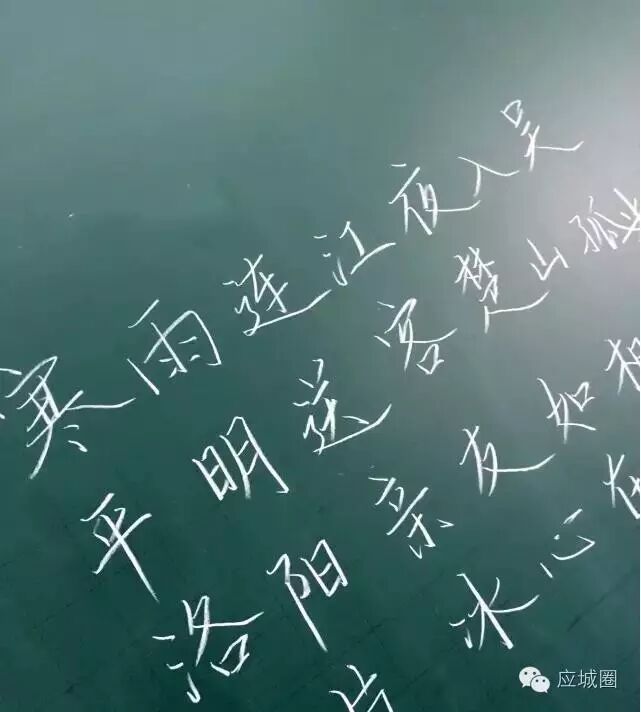 寒雨连江夜入吴
平明送客楚山孤
洛阳亲友如相
片冰心在
应城圈